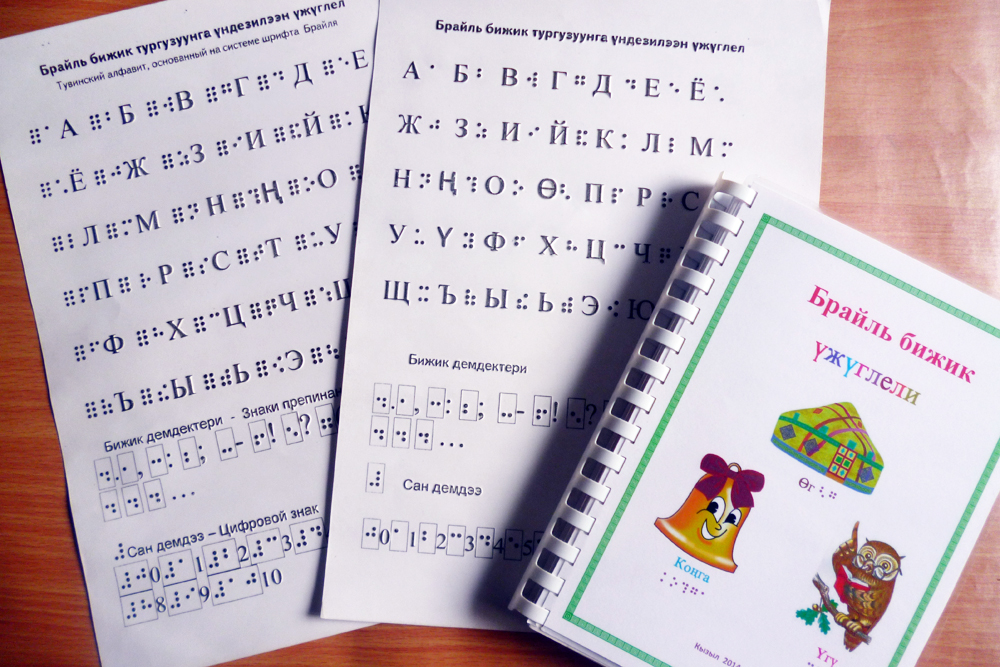 Брайль бижик тургузуунга үндезилээн үжүглел
Тувинский алфавит, основанный на системе шрифта Брайля
А Б В Г Д Е
Ё Ж З И Й
Л М Н Ң О
П Р С Т У
Ф Х Ц Ч
Ъ Ы Ь Э
Бижик демдектери - Знаки препинан
. , : ; - ! ?
...
Сан демдээ – Цифровой знак
0 1 2 3
8 9 10
Брайль бижик тургузуунга үндезилээн үжүглел
А Б В Г Д Е Ё
Ж З И Й К Л М
Н Ң О Ө П Р С
У Ү Ф Х Ц Ч
Щ Ъ Ы Ь Э Ю
Бижик демдектери
. , : ; - ! ?
...
Сан демдээ
0 1 2 3 4 5
Брайль бижик
үжүглели
Өг
Коңга
Үгү
Кызыл 2014